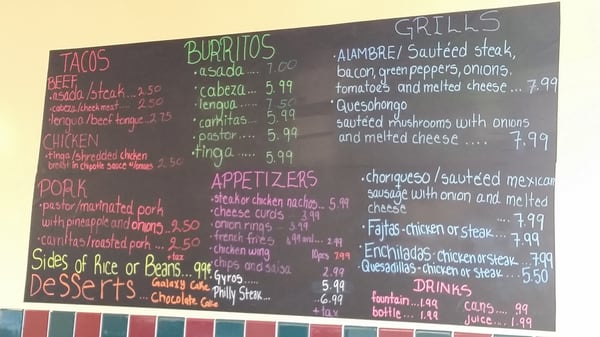 TACOS
BEEF
• asada/steak...2.50
• cabeza/cheek meat.... 2.50
• lengua/beef tongue..2.75
CHICKEN
• tinga/shredded chicken
breast in chipotle sauce w/onions 2.50
PORK
• pastor/marinated pork
with pineapple and onions 2.50
• carnitas/roasted pork... 2.50
+tax
Sides of Rice or Beans...99¢
Desserts... Galaxy Cake
Chocolate Cake
BURRITOS
• asada.... 7.00
• cabeza.... 5.99
• lengua.... 7.50
• carnitas.... 5.99
• pastor.... 5.99
• tinga..... 5.99
APPETIZERS
• steak or chicken nachos... 5.99
• cheese curds... 3.99
• onion rings... 3.99
• french fries ... 2.99
• chicken wing 10pcs 7.99
• chips and salsa 2.99
Gyros..... 5.99
Philly Steak... 6.99
+tax
GRILLS
• AlAMBRE/ Sauteéd steak,
bacon, green peppers, onions.
tomatoes and melted cheese ... 7.99
• Quesohongo
sauteéd mushrooms with onions
and melted cheese ..... 7.99
• choriqueso/sauteéd mexican
sausage with onion and melted
cheese
... 7.99
• Fajtas-chicken or steak...
7.99
• Enchiladas-chicken or steak...7.99
Quesadillas-chicken or steak... 5.50
DRINKS
fountain...1.99 cans... .99
bottle... 1.99 juice....1.99